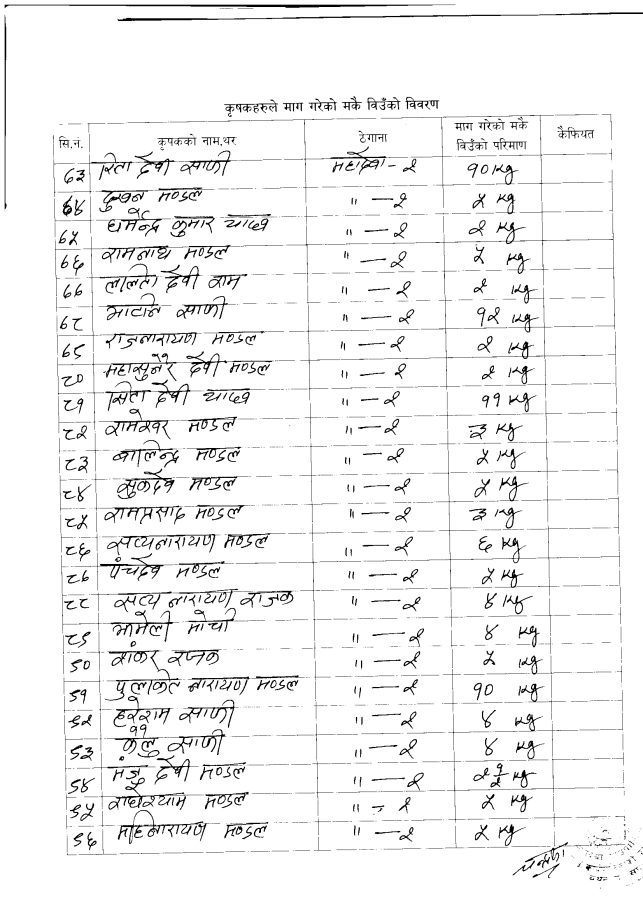 कृषकहरुले माग गरेको मकै विउँको विवरण
सि.नं. कृषकको नाम,थर ठेगाना माग गरेको मकै विउँको परिमाण कैफियत
७३ रिता देवी साफी महादेवा - २ १० kg
७४ दुखन मण्डल " - २ ५ kg
७५ धर्मेन्द्र कुमार यादव " - २ २ kg
७६ रामनाथ मण्डल " - २ ५ kg
७७ ललिता देवी राम " - २ २ kg
७८ साफी " - २ १२ kg
७९ राजनारायण मण्डल " - २ २ kg
८० देवी मण्डल " - २ २ kg
८१ सिता देवी यादव " - २ ११ kg
८२ रामेश्वर मण्डल " - २ ३ kg
८३ बालेन्द्र मण्डल " - २ ५ kg
८४ सुकदेव मण्डल " - २ ५ kg
८५ रामप्रसाद मण्डल " - २ ३ kg
८६ सत्यनारायण मण्डल " - २ ६ kg
८७ पंचदेव मण्डल " - २ ५ kg
८८ सत्य नारायण राजक " - २ ४ kg
८९ मोची " - २ ४ kg
९० रजक " - २ ५ kg
९१ पुलकित नारायण मण्डल " - २ १० kg
९२ हरेराम साफी " - २ ४ kg
९३ कुलु साफी " - २ ४ kg
९४ मंजु देवी मण्डल " - २ २ १/२ kg
९५ राधेश्याम मण्डल " - २ ५ kg
९६ नारायण मण्डल " - २ ५ kg